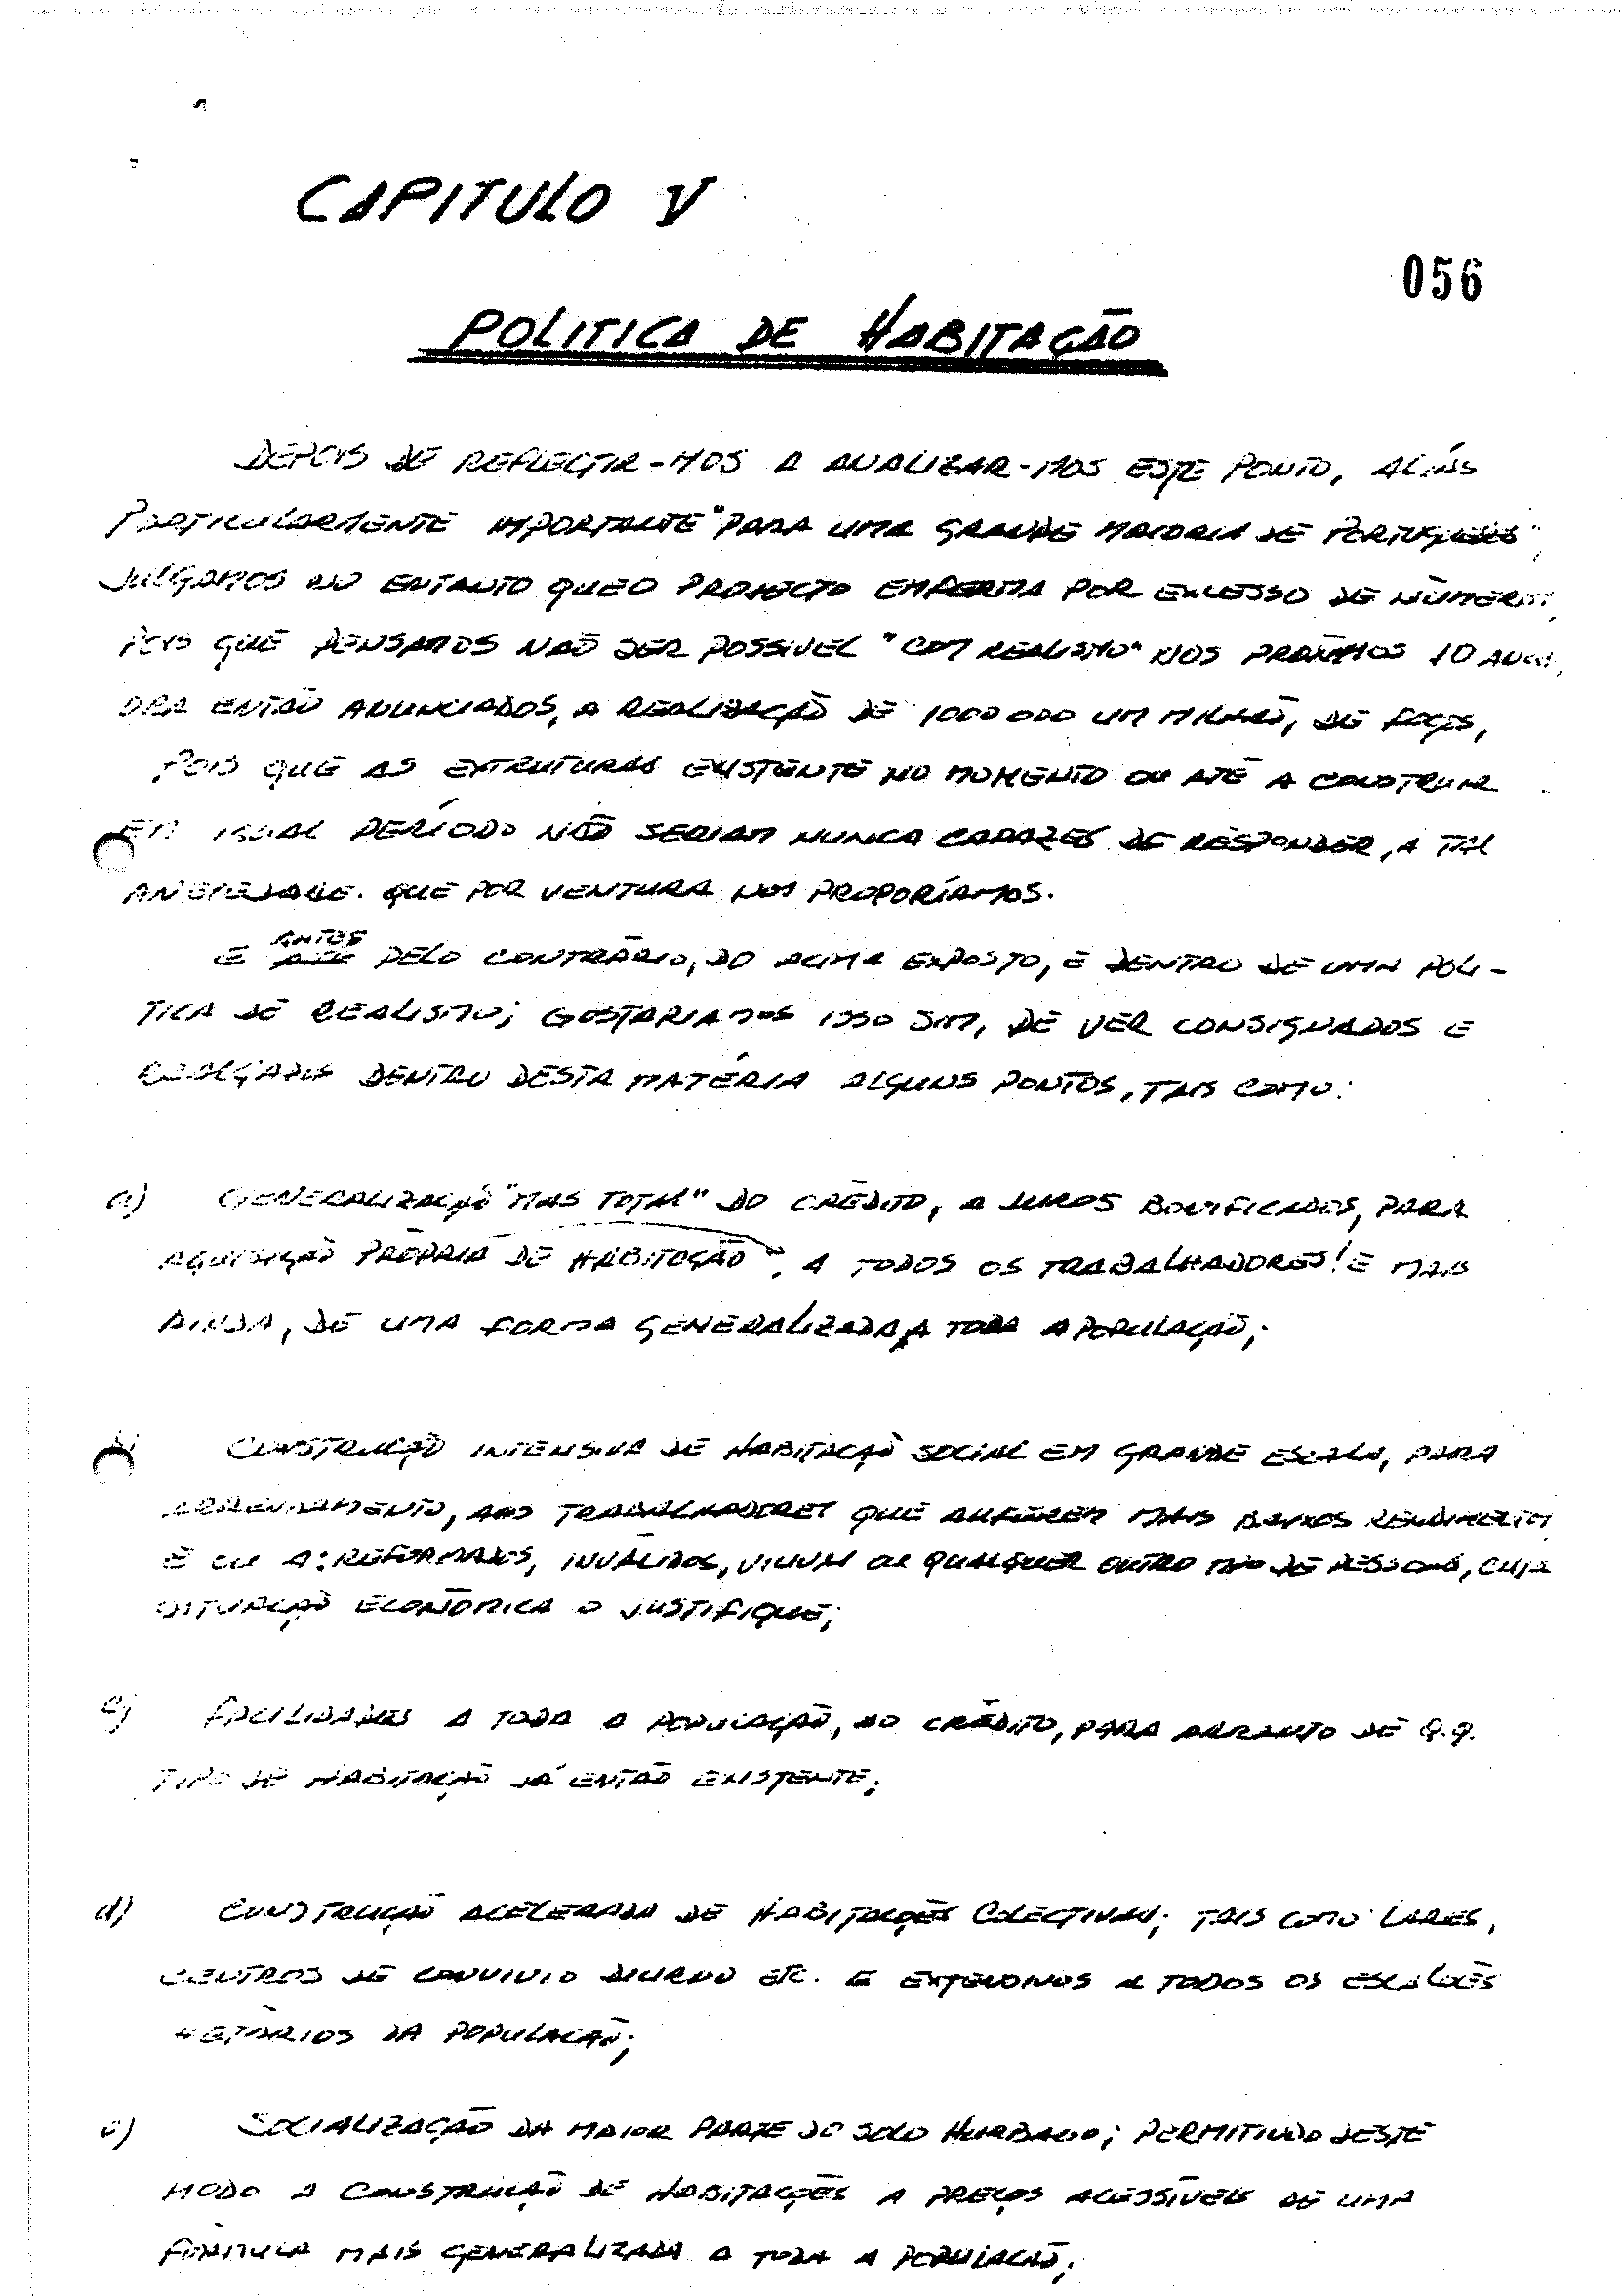 CAPITULO V
056
POLITICA DE HABITAÇÃO
DEPOIS DE REFLECTIR-MOS A ANALIZAR-MOS ESTE PONTO, ALIÁS
PARTICULARMENTE IMPORTANTE "PARA UMA GRANDE MAIORIA DE PORTUGUESES",
JULGAMOS NO ENTANTO QUE O PROJECTO ENFERMA POR EXCESSO DE NÚMEROS,
POIS QUE PENSAMOS NÃO SER POSSIVEL "COM REALISMO" NOS PRÓXIMOS 10 ANOS,
ORA ENTÃO ANUNCIADOS, A REALIZAÇÃO DE 1000 000 UM MILHÃO, DE FOGOS,
POIS QUE AS EXTRUTURAS EXISTENTE NO MOMENTO OU ATÉ A CONSTRUIR
EM IGUAL PERÍODO NÃO SERIAM NUNCA CAPAZES DE RESPONDER, A TAL
QUE POR VENTURA NOS PROPORÍAMOS.
E ANTES PELO CONTRÁRIO, DO ACIMA EXPOSTO, E DENTRO DE UMA POLI-
TICA DE REALISMO; GOSTARIAMOS ISSO SIM, DE VER CONSIGNADOS E
DENTRO DESTA MATÉRIA ALGUNS PONTOS, TAIS COMO:
a) GENERALIZAÇÃO "MAS TOTAL" DO CRÉDITO, A JUROS BONIFICADOS, PARA
AQUISIÇÃO PRÓPRIA DE HABITAÇÃO, A TODOS OS TRABALHADORES! E MAIS
AINDA, DE UMA FORMA GENERALIZADA, A TODA A POPULAÇÃO;
b) CONSTRUÇÃO INTENSIVA DE HABITAÇÃO SOCIAL EM GRANDE ESCALA, PARA
ARRENDAMENTO, AOS TRABALHADORES QUE AUFEREM MAIS BAIXOS RENDIMENTOS
E OU A: REFORMADOS, INVÁLIDOS, VIUVAS OU QUALQUER OUTRO TIPO DE PESSOAS, CUJA
SITUAÇÃO ECONÓMICA O JUSTIFIQUE;
c) FACILIDADES A TODA A POPULAÇÃO, AO CRÉDITO, PARA ARRANJO DE Q.Q.
TIPO DE HABITAÇÃO JÁ ENTÃO EXISTENTE;
d) CONSTRUÇÃO ACELERADA DE HABITAÇÕES COLECTIVAS; TAIS COMO LARES,
CENTROS DE CONVIVIO DIURNO ETC. E EXTENSIVOS A TODOS OS ESCALÕES
HETÁRIOS DA POPULAÇÃO;
e) SOCIALIZAÇÃO DA MAIOR PARTE DO SOLO HURBANO; PERMITINDO DESTE
MODO A CONSTRUÇÃO DE HABITAÇÕES A PREÇOS ACESSÍVEIS DE UMA
FÓRMULA MAIS GENERALIZADA A TODA A POPULAÇÃO;